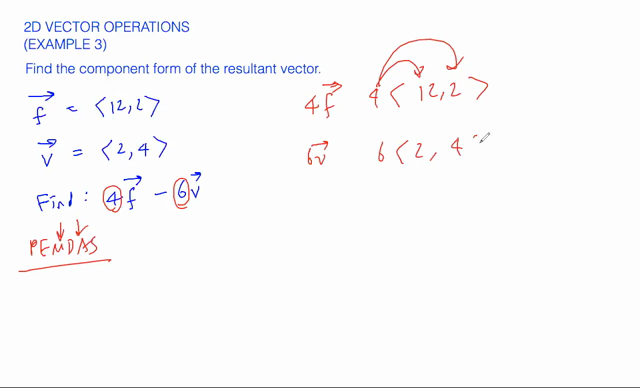 2D VECTOR OPERATIONS
(EXAMPLE 3)
Find the component form of the resultant vector.
f⃗ = ⟨12,2⟩
v⃗ = ⟨2,4⟩
Find: 4f⃗ − 6v⃗
PEMDAS
4f⃗ 4⟨12,2⟩
6v⃗ 6⟨2, 4